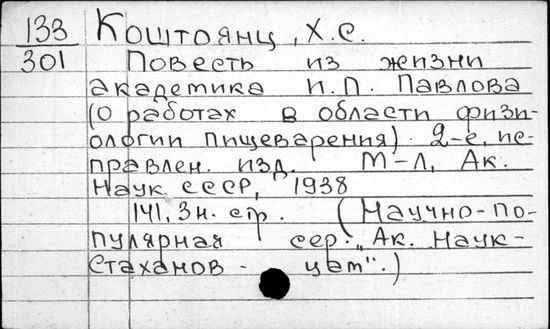 133
301
Коштоянц, Х.С.
Повесть из жизни
академика И.П. Павлова
(О работах в области физи-
ологии пищеварения). 2-е, ис-
правлен. изд. М-Л, Ак.
Наук СССР, 1938
141, 3н. стр. (Научно-по-
пулярная сер. „Ак. Наук-
Стаханов - цам".)